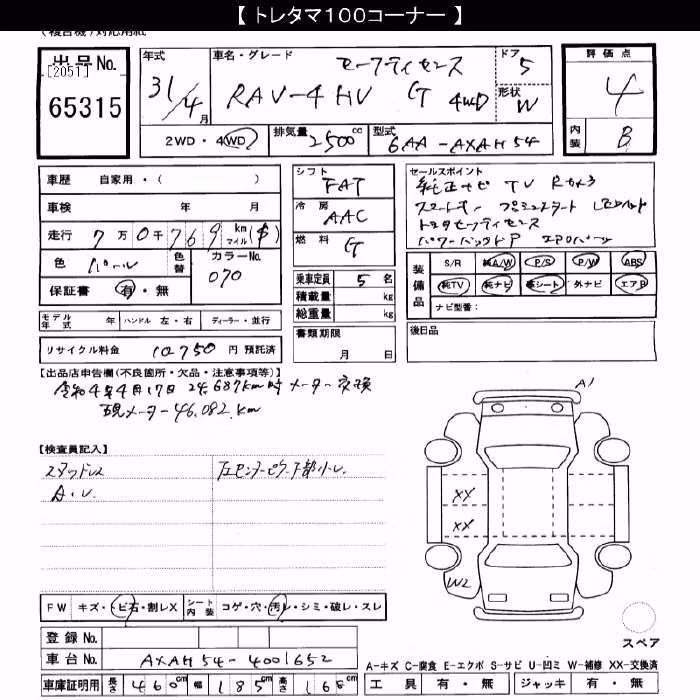 【 トレタマ100コーナー 】
(複合機)対応用紙
出品No. [2051] 65315
年式 31/4月
車名・グレード セーフティセンス
RAV-4 HV G 4WD
ドア 5
形状 W
評価点 4
内装 B
2WD・4WD 排気量 2500cc 型式 6AA-AXAH54
車歴 自家用・( )
車検 年 月
走行 7万0千769 km マイル($)
色 パール 色替 カラーNo. 070
保証書 有・無
モデル年式 年 ハンドル 左・右 ディーラー・並行
リサイクル料金 10750 円 預託済
シフト FAT
冷房 AAC
燃料 G
乗車定員 5 名
積載量 kg
総重量 kg
書類期限 月 日
セールスポイント
純正ナビ TV Rカメラ
スマートキー プッシュスタート LEDヘッド
トヨタセーフティセンス
パワーバックドア エアロパーツ
装備品 S/R 純A/W P/S P/W ABS
純TV 純ナビ 革シート 外ナビ エアB
ナビ型番:
後日品
【出品店申告欄(不良箇所・欠品・注意事項等)】
令和4年4月17日 24,687km時メーター交換
現メーター46,082km
【検査員記入】
スタッドレス
A・U
左センターピラー下部小U
A1
XX
XX
W2
FW キズ・トビ石・割レX シート内装 コゲ・穴・汚レ・シミ・破レ・スレ
登録No.
車台No. AXAH54-4001652
車庫証明用 長さ 460cm 幅 185cm 高さ 168cm
スペア
A-キズ C-腐食 E-エクボ S-サビ U-凹ミ W-補修 XX-交換済
工具 有・無 ジャッキ 有・無